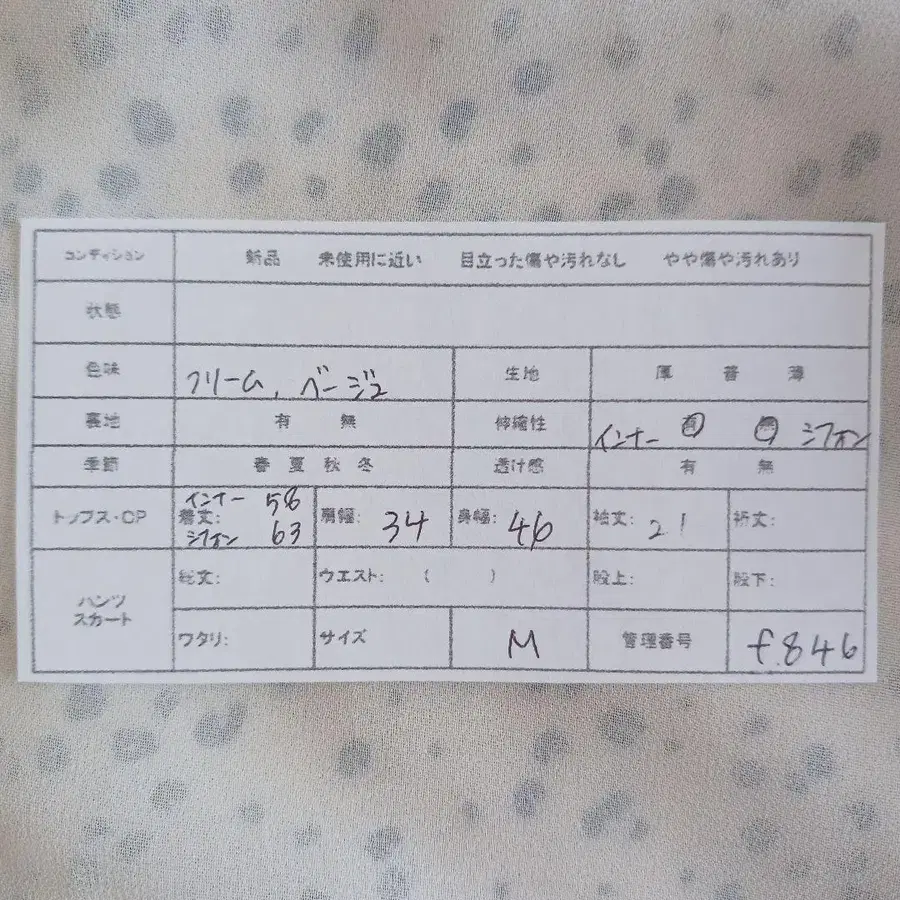 コンディション 新品 未使用に近い 目立った傷や汚れなし やや傷や汚れあり
状態
色味 クリーム、ベージュ 生地 厚 普 薄
裏地 有 無 伸縮性 インナー 有 無 シフォン
季節 春 夏 秋 冬 透け感 有 無
インナー 58
トップス・OP 着丈: 肩幅: 34 身幅: 46 袖丈: 21 裄丈:
シフォン 63
パンツ 総丈: ウエスト: ( ) 股上: 股下:
スカート
ワタリ: サイズ M 管理番号 f.846